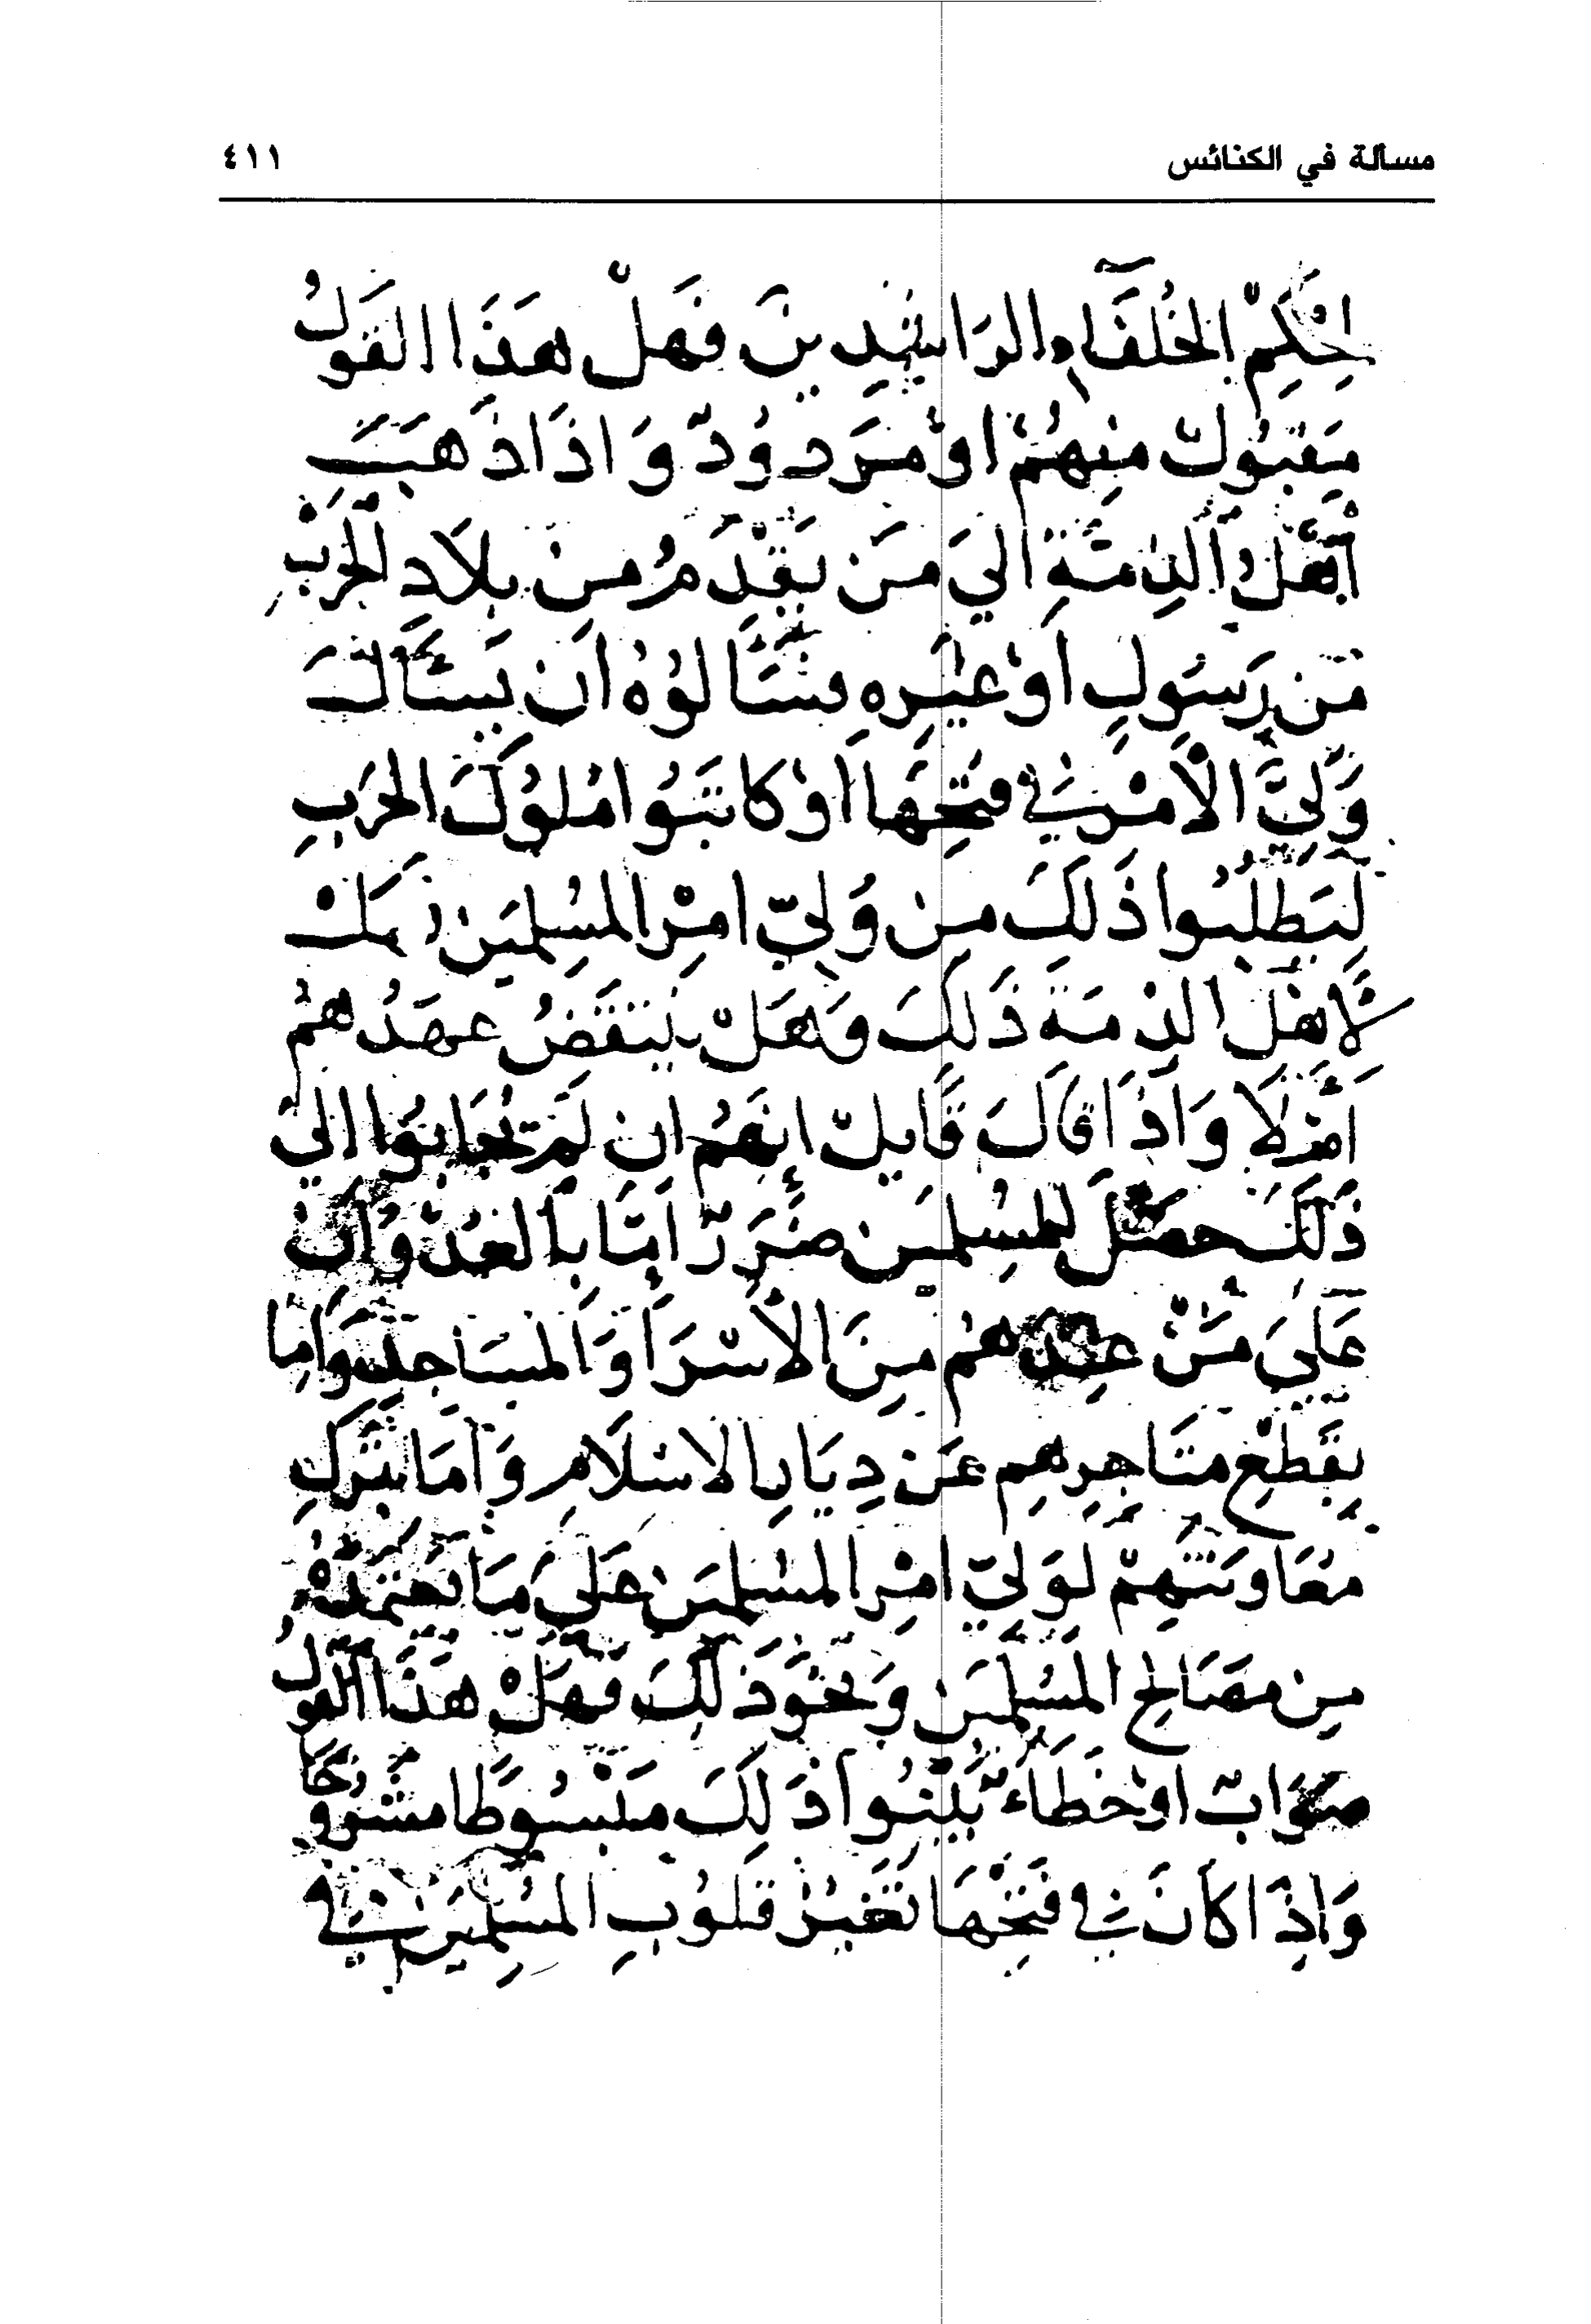 مسألة في الكنائس ٤١١
لحكم الخلفاء الراشدين فهل هذا القول
مقبول منهم او مردود واذا ذهب
أهل الذمة الي من يقدم من بلاد الحرب
من رسول أو غيره يسئالوه ان يسئال
ولي الأمر في فتحها او كاتبوا ملوك الحرب
ليطلبوا ذلك من ولي امر المسلمين
لأهل الذمة ذلك وهل ينتقض عهدهم
أم لا واذا قال قايل انهم ان لم يجابوا الي
ذلك حصل للمسلمين ضرر اما بالعدوان
علي من عندهم من الأسرا والمساجد واما
بقطع متاجرهم عن ديار الاسلام وأما بترك
معاونتهم لولي امر المسلمين علي ما يعتمده
من مصالح المسلمين ونحو ذلك فهل هذا القول
صواب او خطاء بينوا ذلك مبسوطا مشروحا
واذا كان في فتحها تغير قلوب المسلمين في